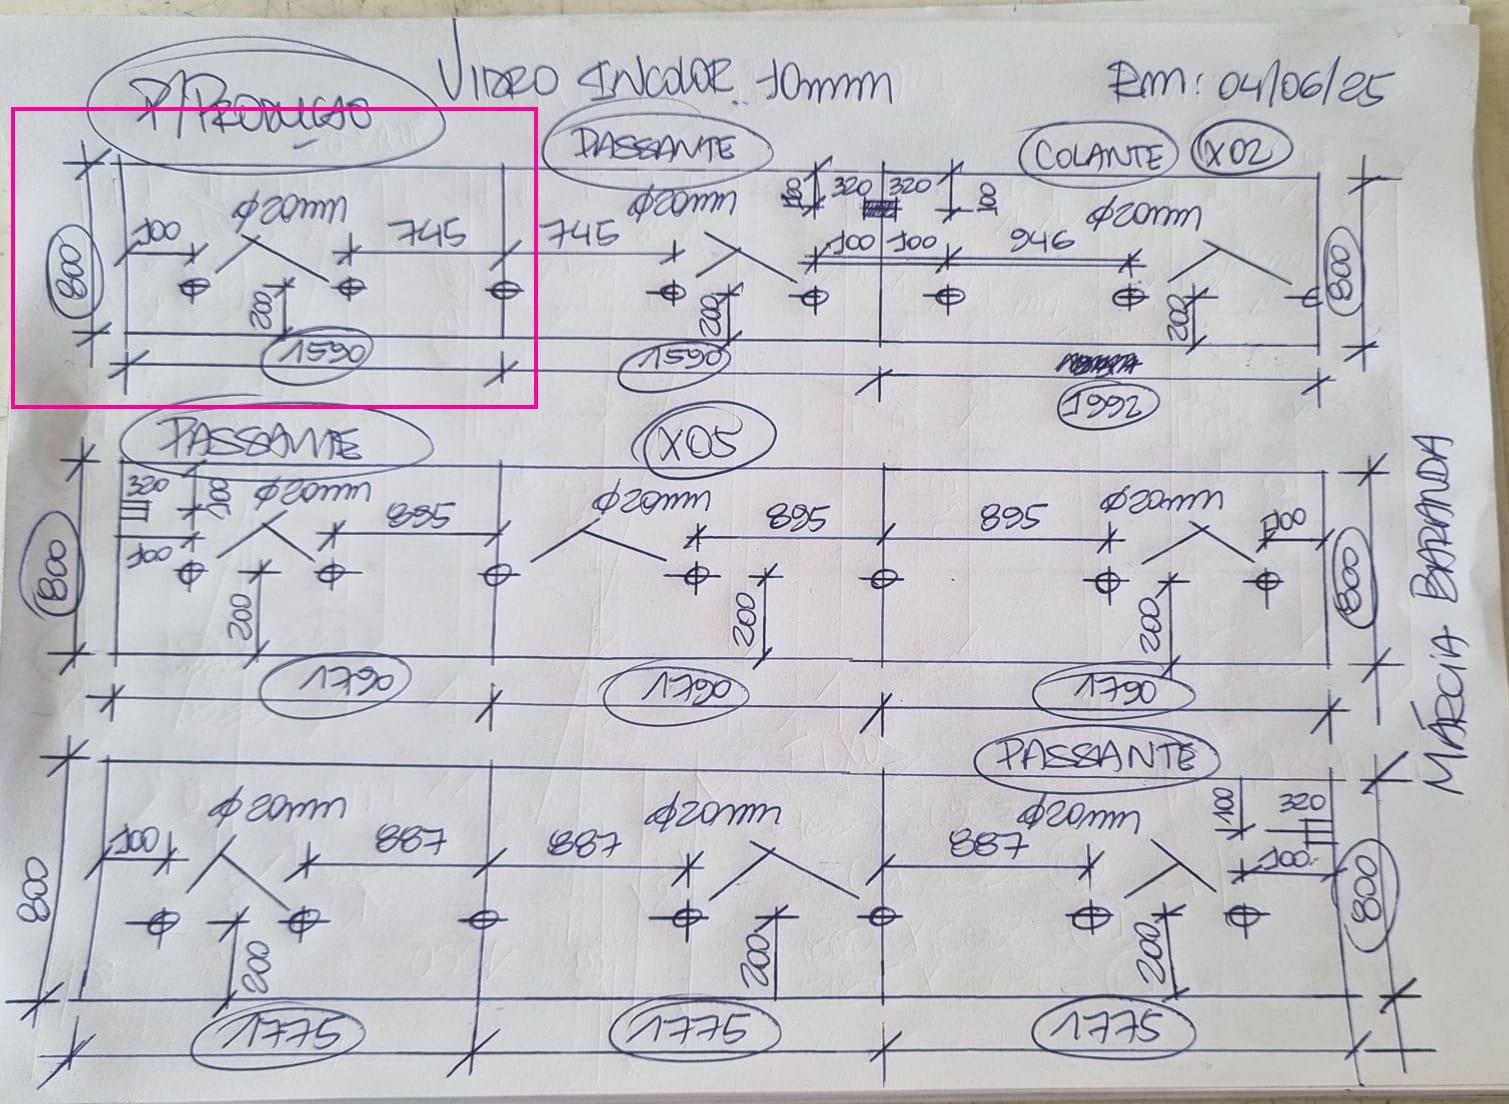 P/PRODUÇÃO
VIDRO INCOLOR 10mm
RM: 04/06/25
PASSANTE
COLANTE
X02
800
100
ϕ20mm
745
200
1590
745
ϕ20mm
100
320
320
100
100
100
200
1590
946
ϕ20mm
200
800
1992
PASSANTE
X05
800
320
100
100
ϕ20mm
895
200
1790
ϕ20mm
895
200
1790
895
ϕ20mm
100
200
800
1790
MÁRCIA BARANDA
PASSANTE
800
100
ϕ20mm
887
200
1775
887
ϕ20mm
200
1775
887
ϕ20mm
100
320
100
200
800
1775